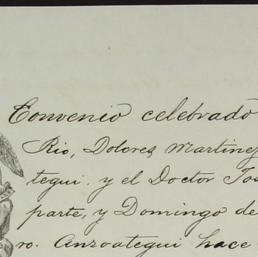 Convenio celebrado
Rio, Dolores Martinez
tegui. y el Doctor Jos
parte, y Domingo de
ro. Anzoategui hace